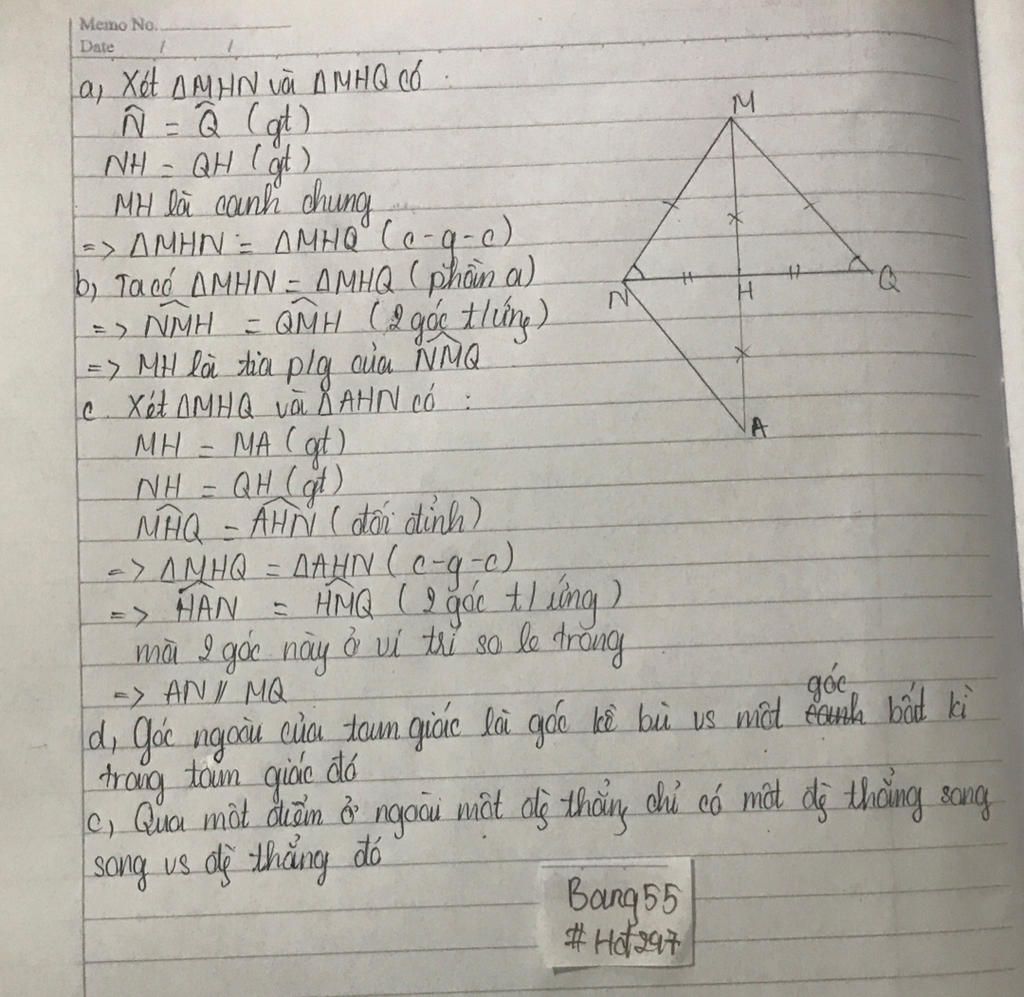 Memo No.
Date / /
a, Xét ΔMHN và ΔMHQ có :
N̂ = Q̂ (gt)
NH = QH (gt)
MH là canh chung
=> ΔMHN = ΔMHQ (c-g-c)
b, Ta có ΔMHN = ΔMHQ (phần a)
=> NMH = QMH (2 góc t/ứng)
=> MH là tia p/g của NMQ
c. Xét ΔMHQ và ΔAHN có :
MH = MA (gt)
NH = QH (gt)
MHQ = AHN (đối đỉnh)
=> ΔMHQ = ΔAHN (c-g-c)
=> HAN = HMQ (2 góc t/ứng)
mà 2 góc này ở ví trí so le trong
=> AN // MQ
góc
d, Góc ngoài của tam giác là góc kề bù vs một canh bất kì
trong tam giác đó
c, Qua một điểm ở ngoài một đg thẳng chỉ có một đg thẳng song
song vs đg thẳng đó
M
N
H
Q
A
Bang55
#Hdt297